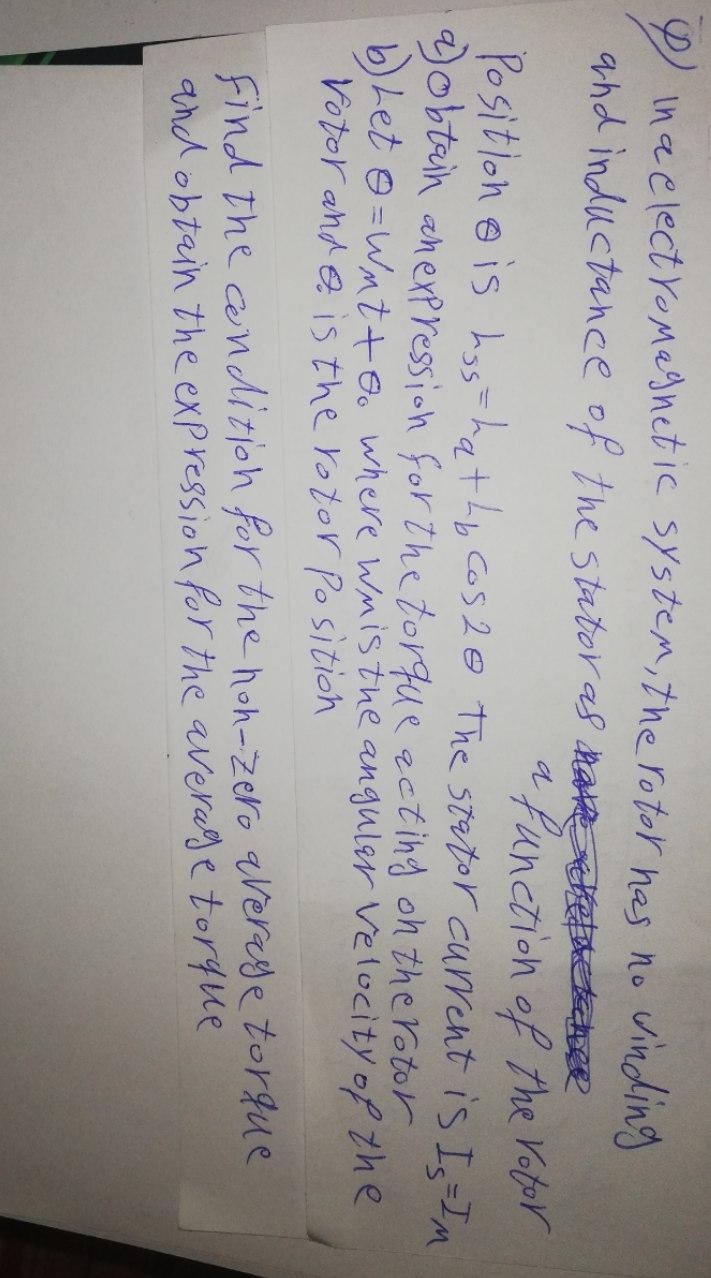 φ) in a electromagnetic system, the rotor has no winding
and inductance of the stator as
a function of the rotor
Position θ is Lss = La + Lb cos2θ The stator current is Is=Im
a) Obtain an expression for the torque acting on the rotor
b) Let θ=Wmt + θo where Wm is the angular velocity of the
rotor and θo is the rotor Position
find the condition for the non-zero average torque
and obtain the expression for the average torque